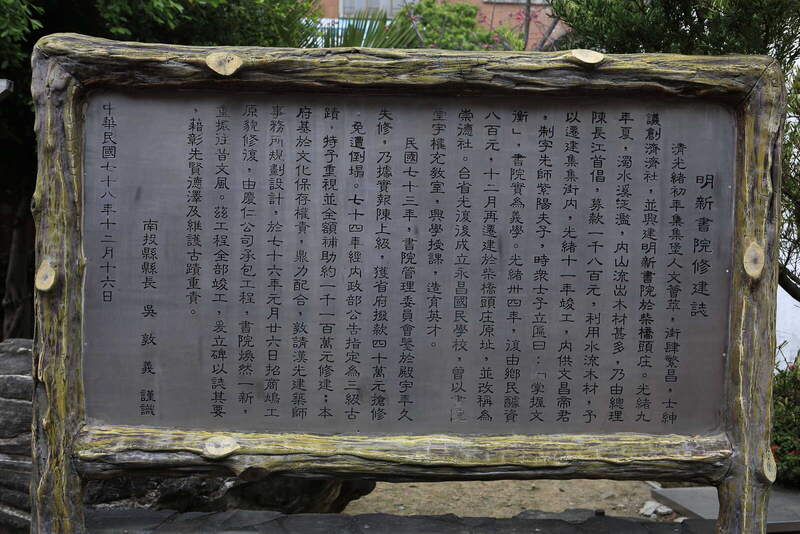 明新書院修建誌
清光緒初年集集堡人文薈萃，街肆繁昌，士紳
議創濟濟社，並興建明新書院於柴橋頭庄。光緒九
年夏，濁水溪泛濫，內山流出木材甚多，乃由總理
陳長江首倡，募款一千八百元，利用水流木材，予
以遷建集集街內，光緒十一年竣工，內供文昌帝君
，制字先師紫陽夫子，時衆士子立匾曰：「掌握文
衡」，書院實為義學。光緒卅四年，復由鄉民醵資
八百元，十二月再遷建於柴橋頭庄原址，並改稱為
崇德社。台省光復後成立永昌國民學校，曾以
堂宇權充教室，興學授課，造育英才。
民國七十三年，書院管理委員會鑒於殿宇年久
失修，乃據實報陳上級，獲省府撥款四十萬元搶修
，免遭倒塌。七十四年經內政部公告指定為三級古
蹟，特予重視並全額補助約一千一百萬元修建；本
府基於文化保存權責，鼎力配合，敦請漢光建築師
事務所規劃設計，於七十六年元月廿六日招商鳩工
原貌修復，由慶仁公司承包工程，書院煥然一新，
重振往昔文風。茲工程全部竣工，爰立碑以誌其要
，藉彰先賢德澤及維護古蹟重責。
南投縣縣長 吳敦義 謹識
中華民國七十八年十二月十六日